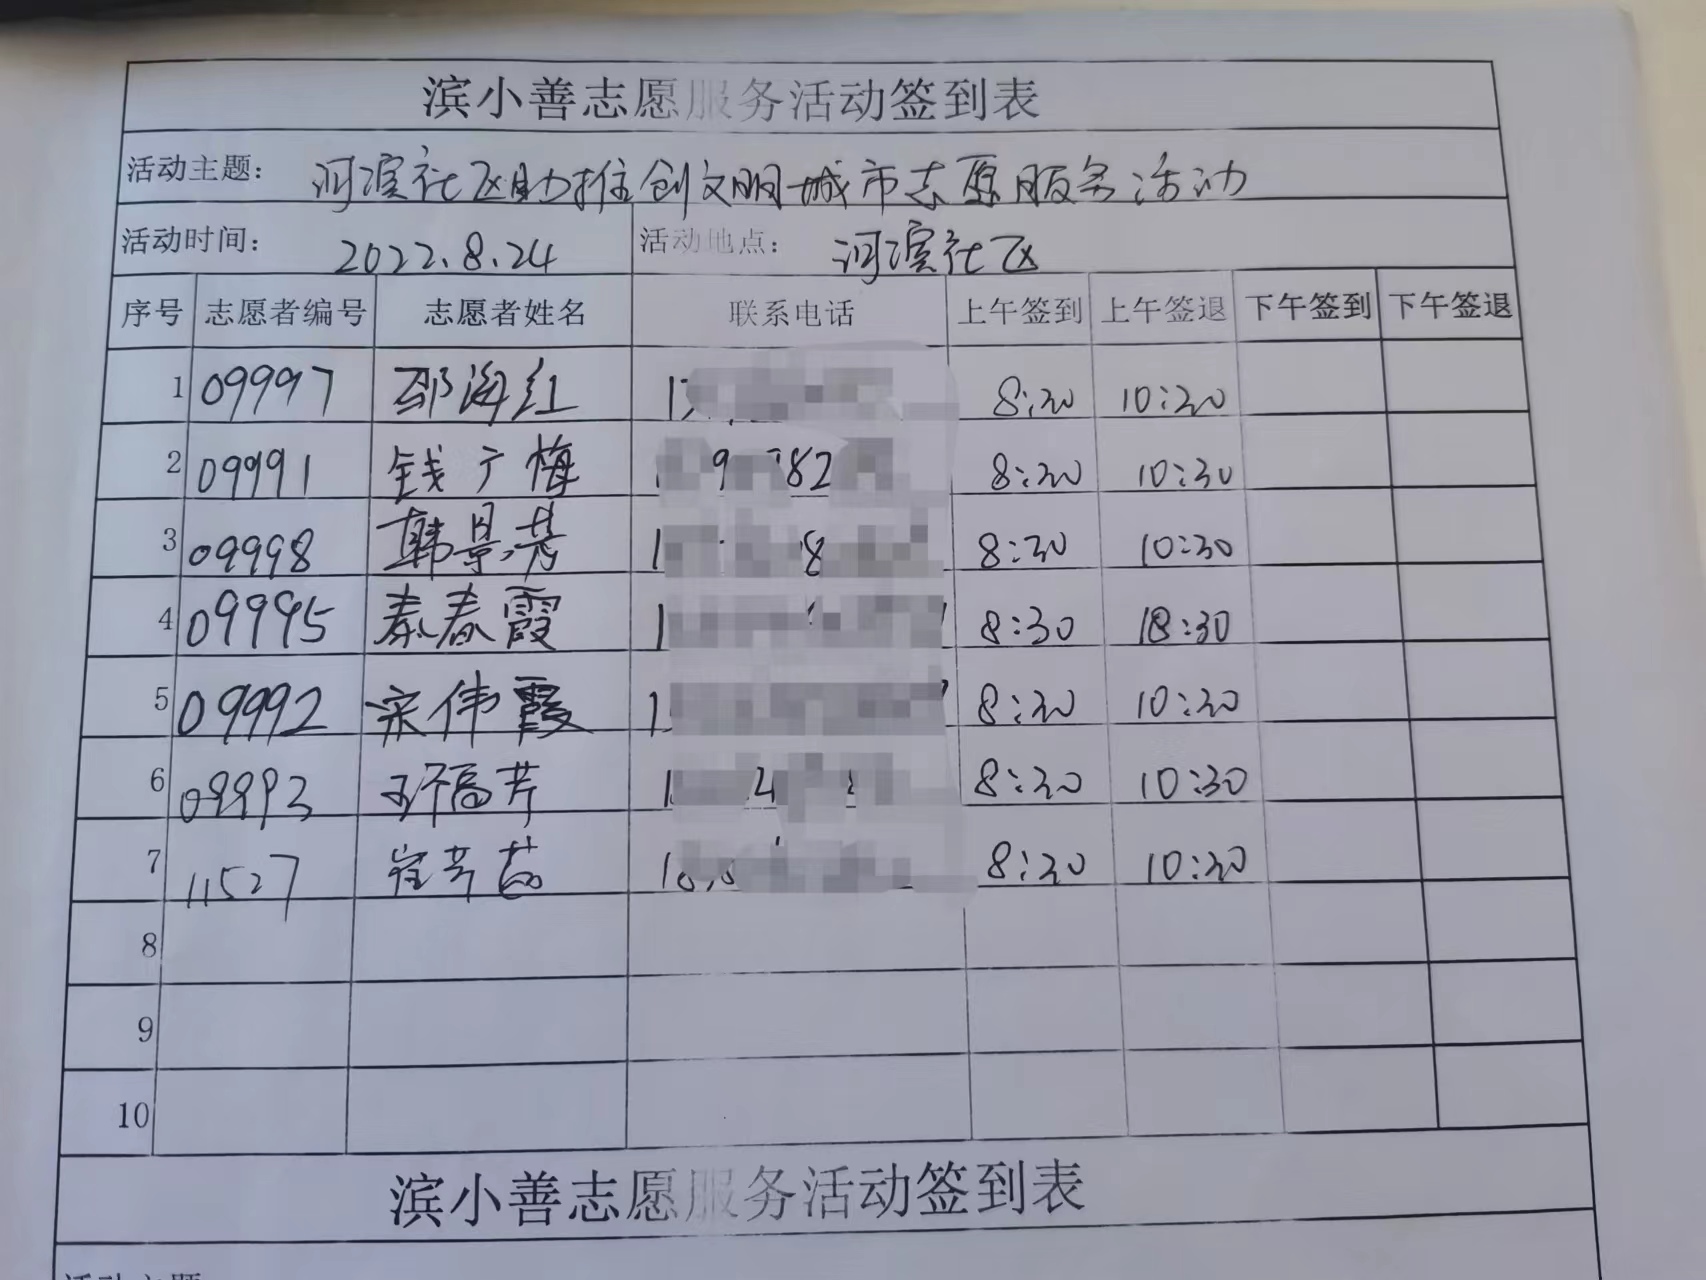 滨小善志愿服务活动签到表
活动主题： 河滨社区助推创文明城市志愿服务活动
活动时间： 2022.8.24 活动地点： 河滨社区
序号 志愿者编号 志愿者姓名 联系电话 上午签到 上午签退 下午签到 下午签退
1 09997 邵海红 8:30 10:30
2 09991 钱广梅 8:30 10:30
3 09998 韩景芳 8:30 10:30
4 09995 秦春霞 8:30 18:30
5 09992 宋伟霞 8:30 10:30
6 09993 8:30 10:30
7 11527 8:30 10:30
8
9
10
滨小善志愿服务活动签到表